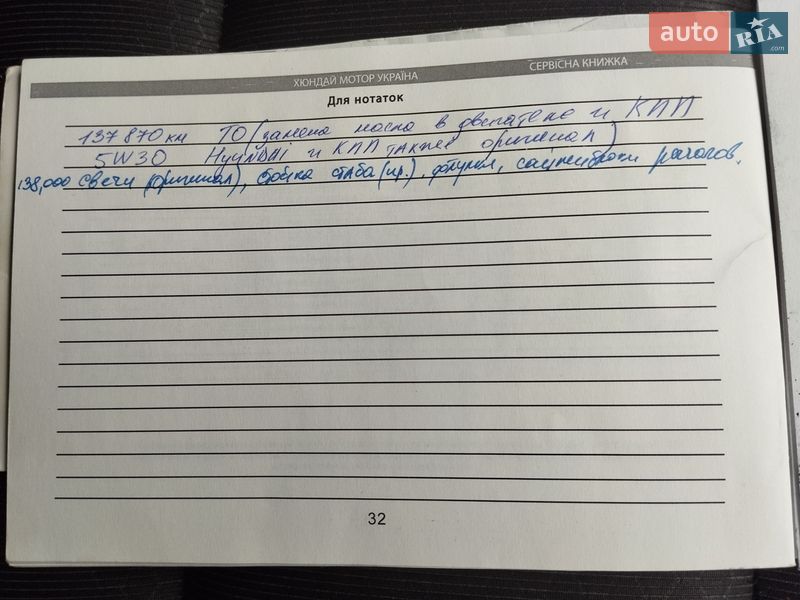 auto RIA .com
ХЮНДАЙ МОТОР УКРАЇНА СЕРВІСНА КНИЖКА
Для нотаток
137870 км ТО (замена масла в двигателе и КПП
5W30 Hyundai и КПП также оригинал)
138,000 свечи (оригинал), стойка стаба (пр.), сайлентблоки рычагов.
32